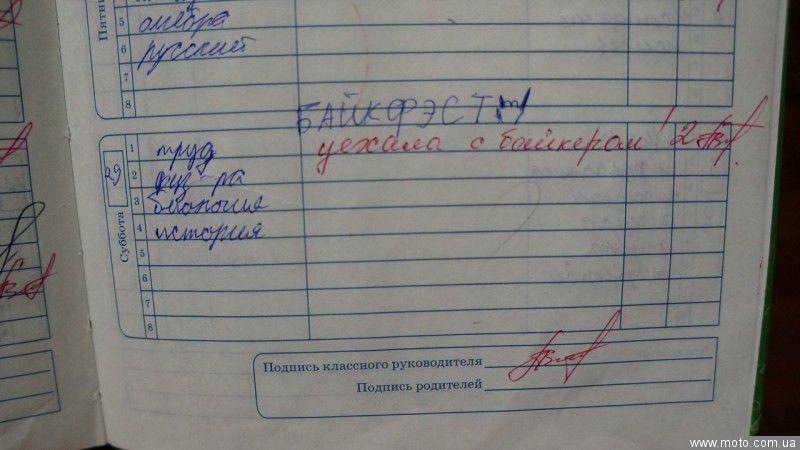 Пятни
5 алгебра
6 русский
7
8
БАЙКФЭСТ!
Суббота 29
1 труд уехала с байкером! 2
2 физ-ра
3 биология
4 история
5
6
7
8
Подпись классного руководителя
Подпись родителей
www.moto.com.ua